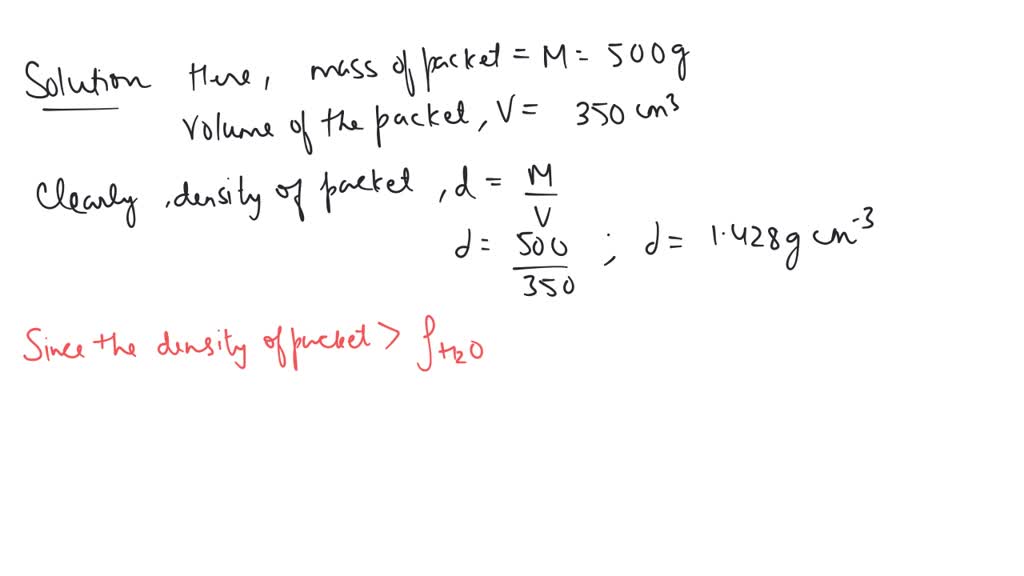 Solution Here, mass of packet = M = 500g
Volume of the packet, V = 350 cm³
Clearly, density of packet, d = M/V
d = 500/350 ; d = 1.428g cm⁻³
Since the density of packet > ρH₂O